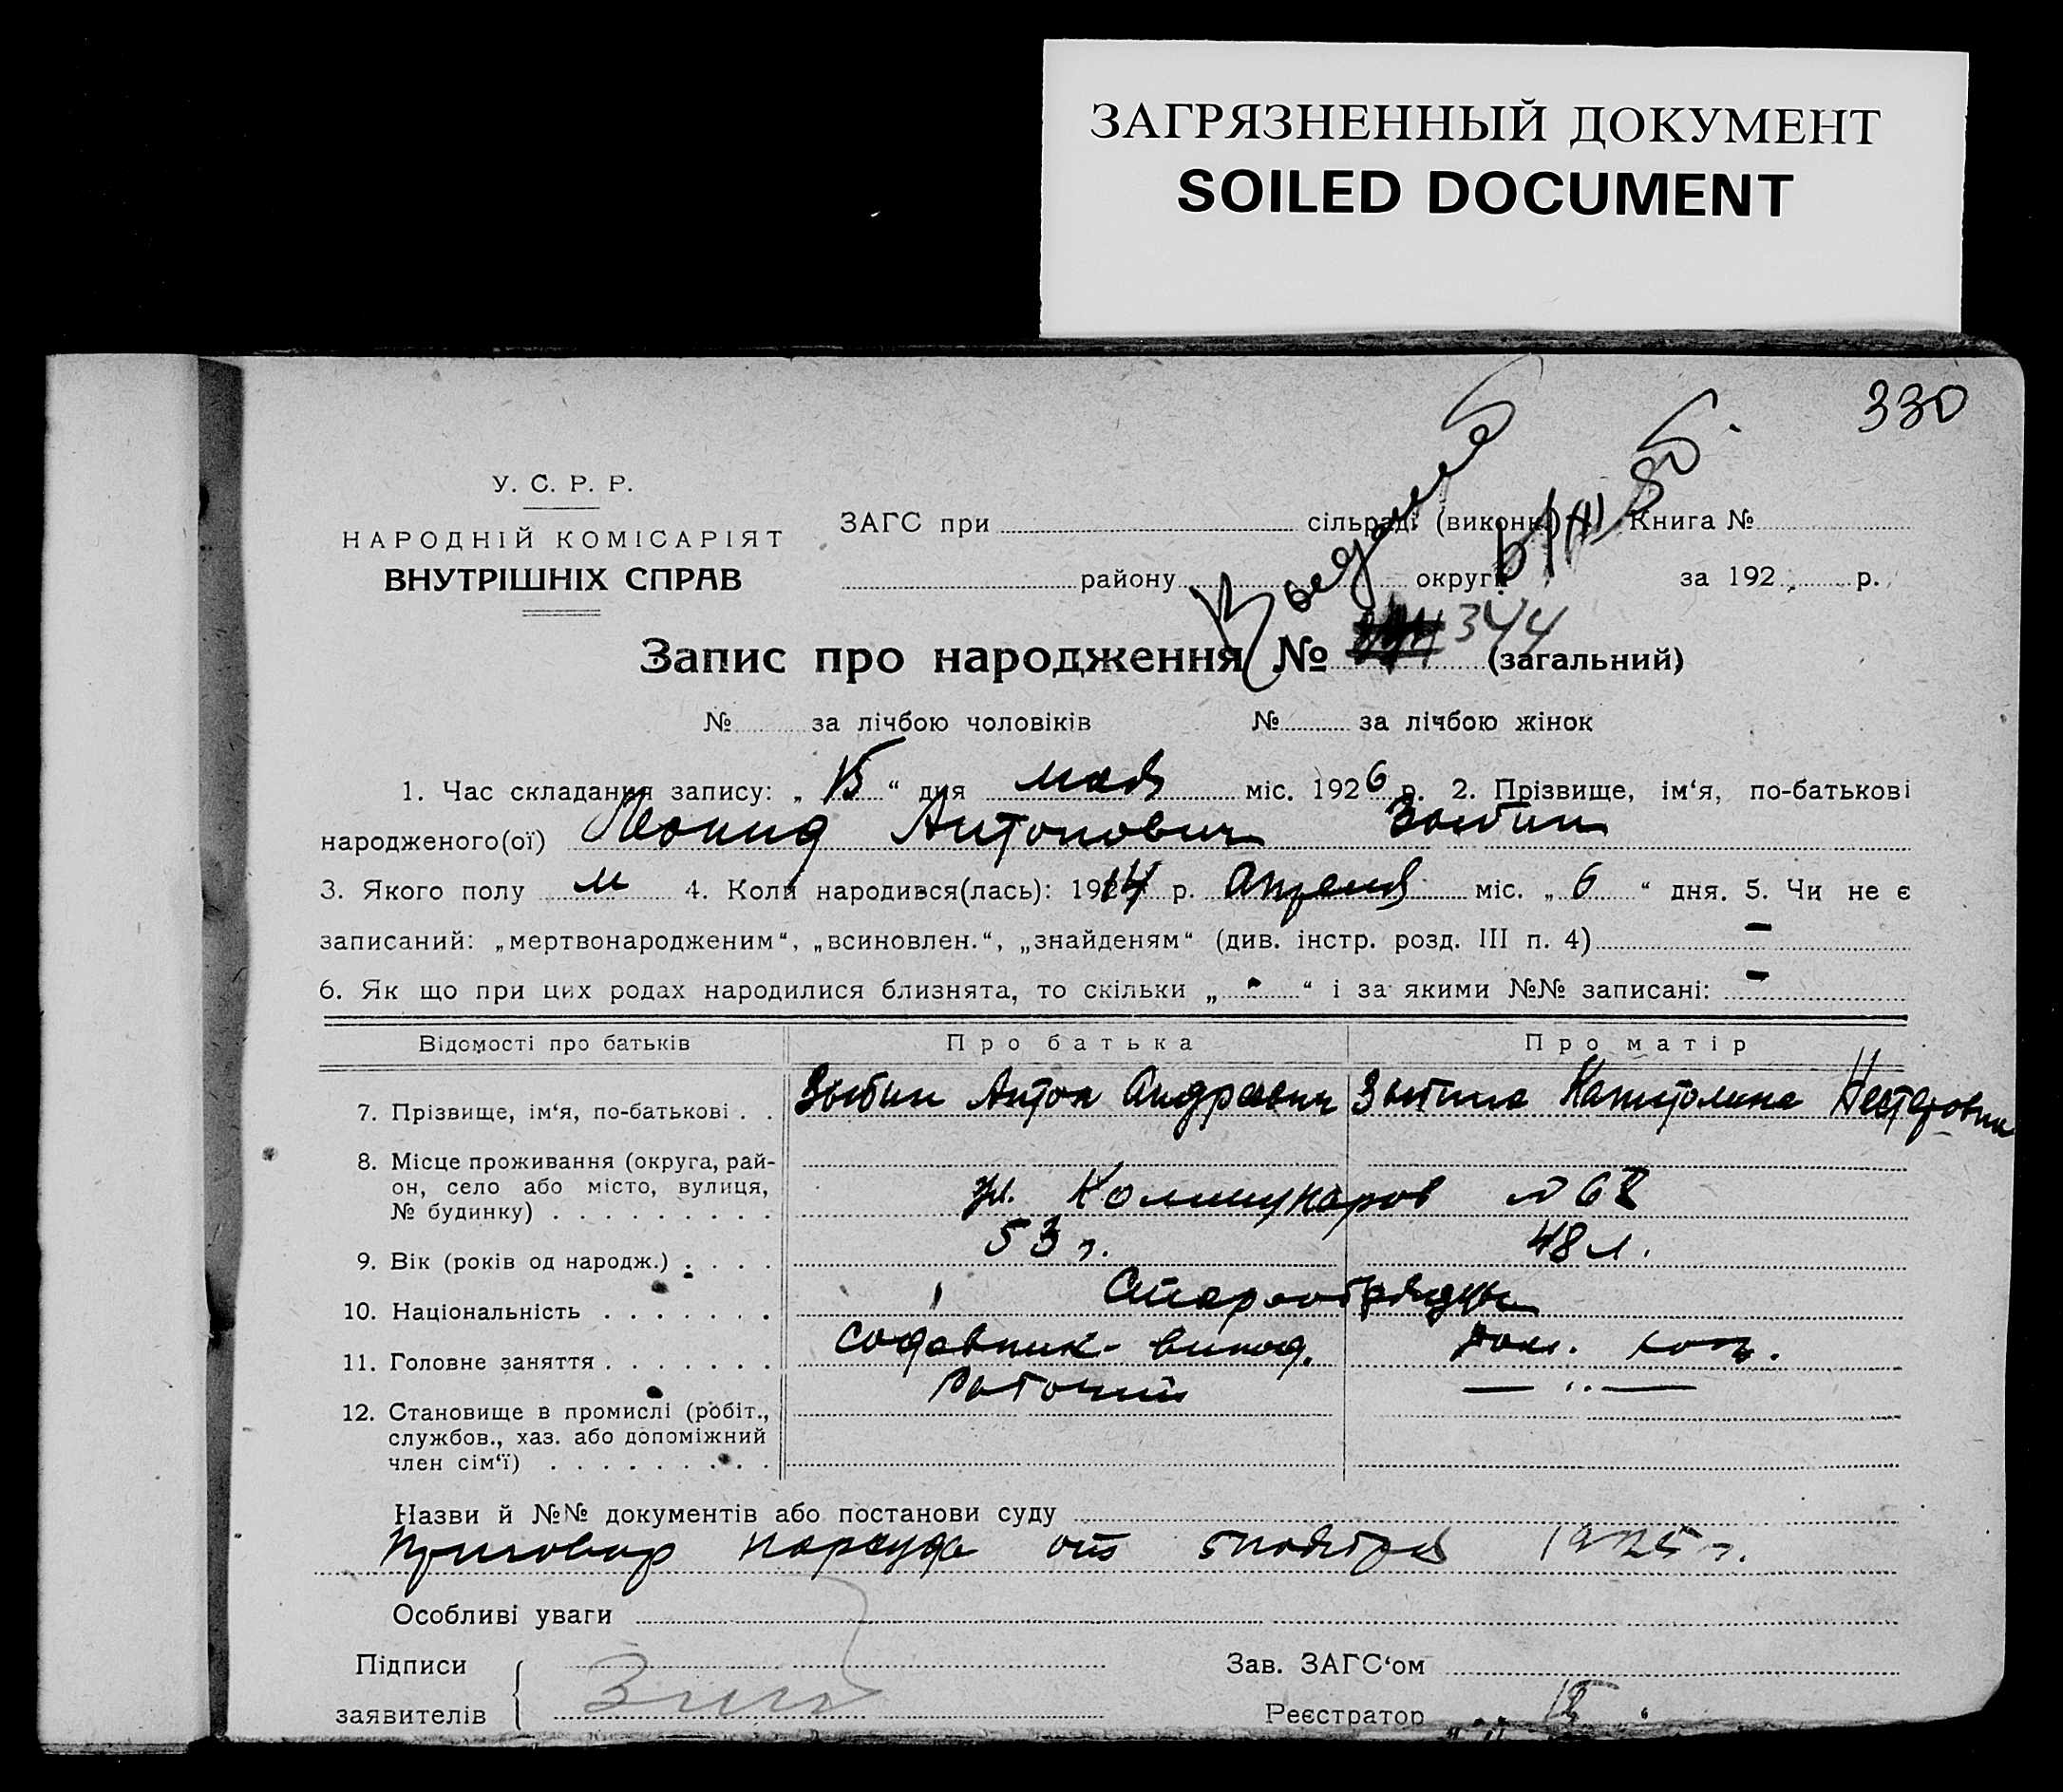 ЗАГРЯЗНЕННЫЙ ДОКУМЕНТ
SOILED DOCUMENT
330
У. С. Р. Р.
НАРОДНІЙ КОМІСАРІЯТ
ВНУТРІШНІХ СПРАВ
ЗАГС при сільраді (виконк.) Книга №
району округи за 192 р.
Запис про народження № 344 (загальний)
№ за лічбою чоловіків № за лічбою жінок
1. Час складання запису: „ 15 “ дня мая міс. 1926 р. 2. Прізвище, ім‘я, по-батькові
народженого(ої) Леонид Антонович Зыбин
3. Якого полу м 4. Коли народився(лась): 1914 р. Апреля міс. „ 6 “ дня. 5. Чи не є
записаний: „мертвонародженим“, „всиновлен.“, „знайденям“ (див. інстр. розд. III п. 4) -
6. Як що при цих родах народилися близнята, то скільки „ - “ і за якими №№ записані: -
Відомості про батьків Про батька Про матір
7. Прізвище, ім‘я, по-батькові . . Зыбин Антон Андреевич Зыбина Капитолина Нестеровна
8. Місце проживання (округа, рай-
он, село або місто, вулиця,
№ будинку) . . . . . . . . . ул. Коммунаров №
9. Вік (років од народж.) . . . . 53 г. 48 л.
10. Національність . . . . . . . Старообрядцы
11. Головне заняття . . . . . . . дом. хоз.
12. Становище в промислі (робіт., Рабочий — ,, —
службов., хаз. або допоміжний
член сім‘ї) . . . . . . . . .
Назви й №№ документів або постанови суду
Приговор нарсуда от ноября 1925 г.
Особливі уваги
Підписи Зав. ЗАГС‘ом
заявителів Реєстратор